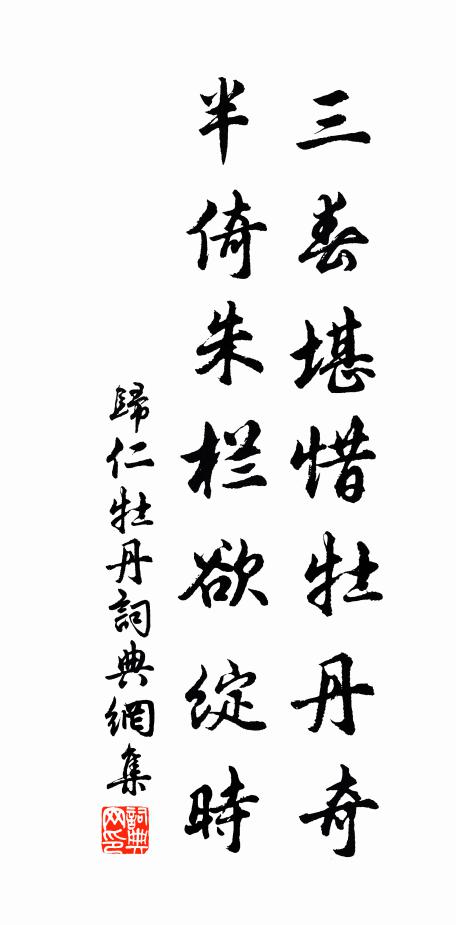 三春堪惜牡丹奇
半倚朱栏欲绽時
歸仁牡丹詞典網集
詞典网印